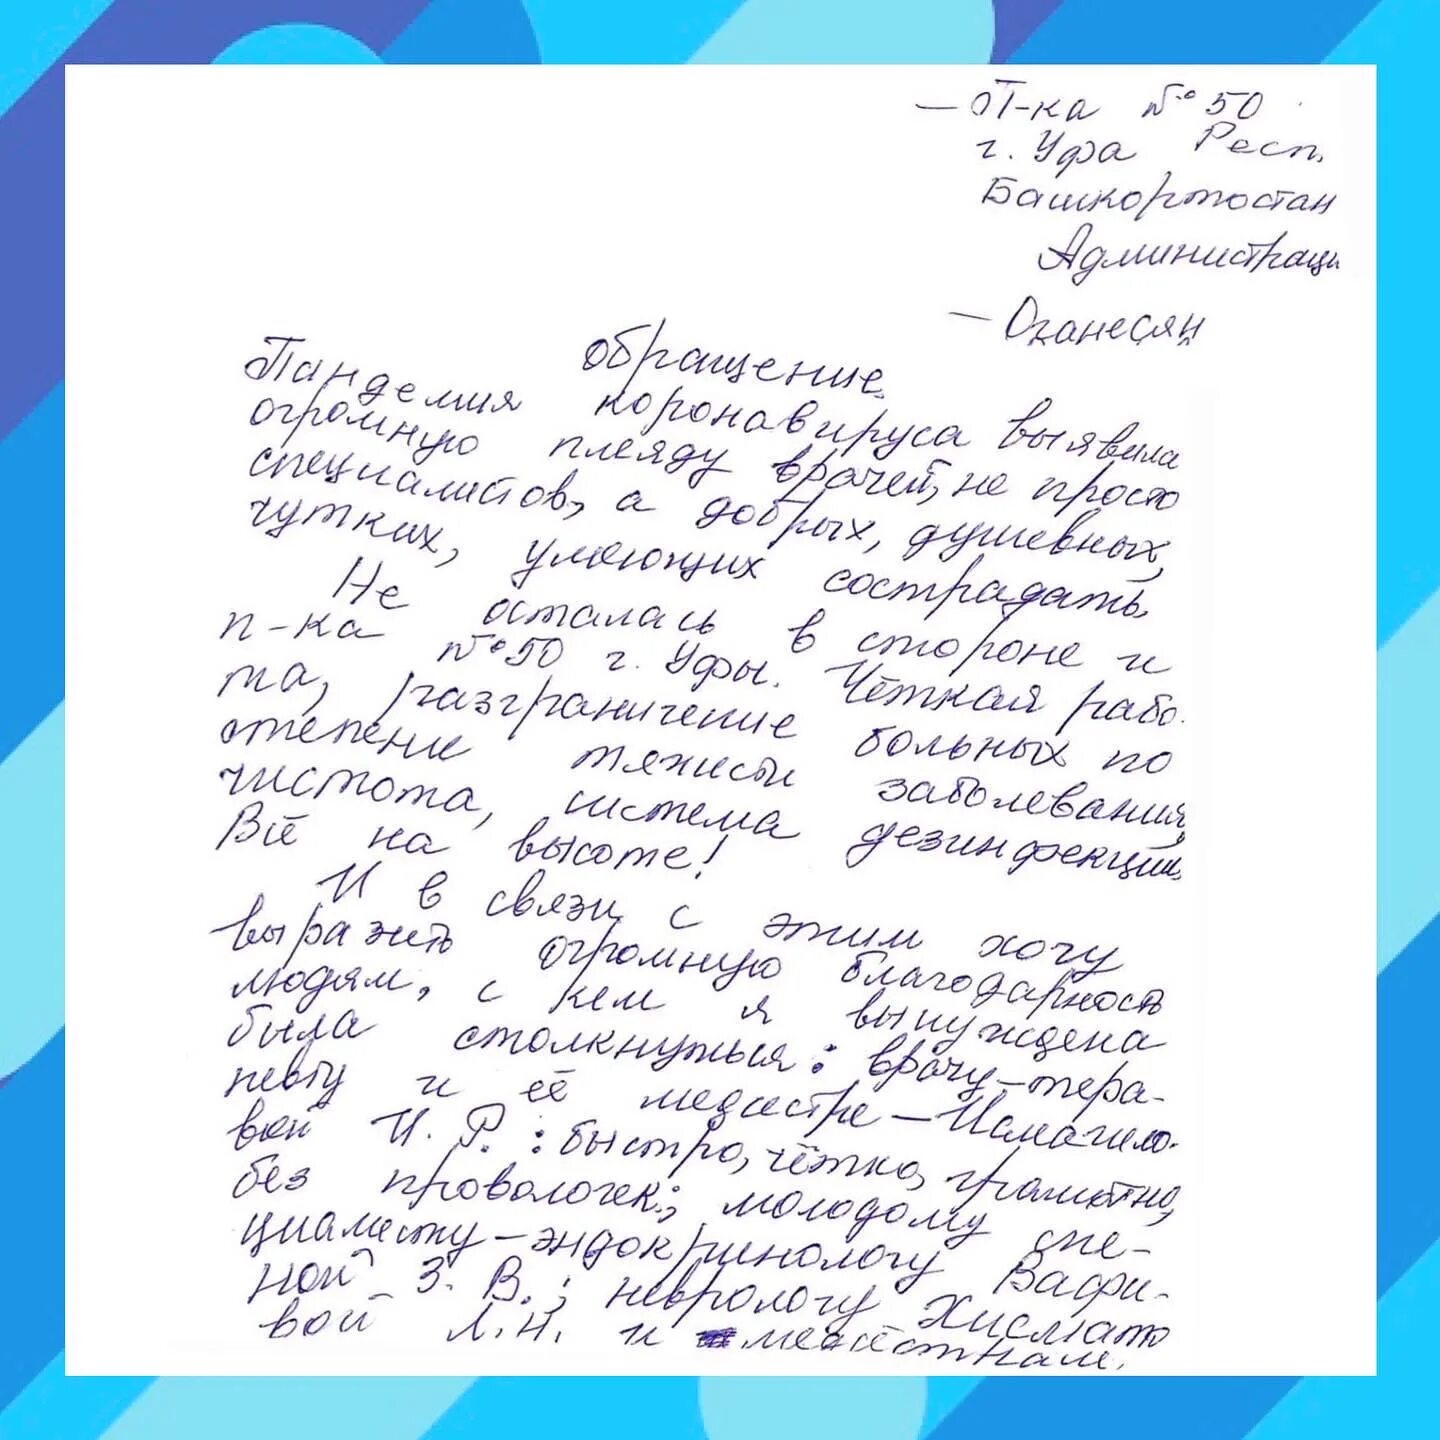 — П-ка №50
г. Уфа Респ.
Башкортостан
Администраци
— Оганесян
обращение.
Пандемия коронавируса выявила
огромную плеяду врачей, не просто
специалистов, а добрых, душевных,
чутких, умеющих сострадать.
Не осталась в стороне и
п-ка №50 г. Уфы. Чёткая рабо-
та, разграничение больных по
степени тяжести заболевания,
чистота, система дезинфекции.
Всё на высоте!
И в связи с этим хочу
выразить огромную благодарность
людям, с кем я вынуждена
была столкнуться: врачу-тера-
певту и её медсестре — Исмагило-
вой И. Р.: быстро, чётко, грамотно,
без проволочек; молодому спе-
циалисту-эндокринологу Вафи-
ной З. В.; неврологу Хисмато
вой Л.Н. и медсёстрам.